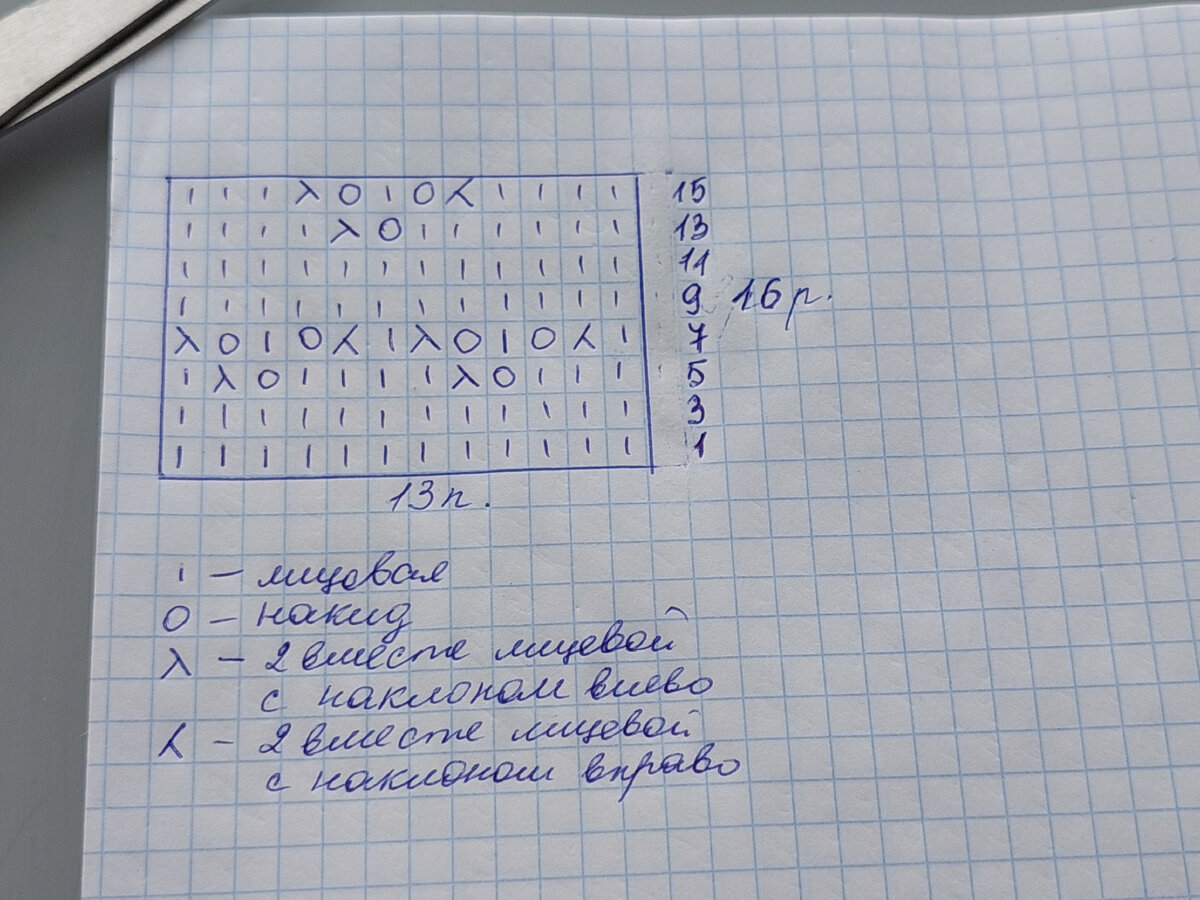 ı ı ı λ O ı O ⅄ ı ı ı ı 15
ı ı ı ı λ O ı ı ı ı ı ı 13
ı ı ı ı ı ı ı ı ı ı ı ı 11
ı ı ı ı ı ı ı ı ı ı ı ı 9 16 р.
λ O ı O ⅄ ı λ O ı O ⅄ ı 7
ı λ O ı ı ı ı λ O ı ı ı 5
ı ı ı ı ı ı ı ı ı ı ı ı 3
ı ı ı ı ı ı ı ı ı ı ı ı 1
13 п.
ı – лицовая
O – накид
λ – 2 вместе лицевой
с наклоном влево
⅄ – 2 вместе лицевой
с наклоном вправо